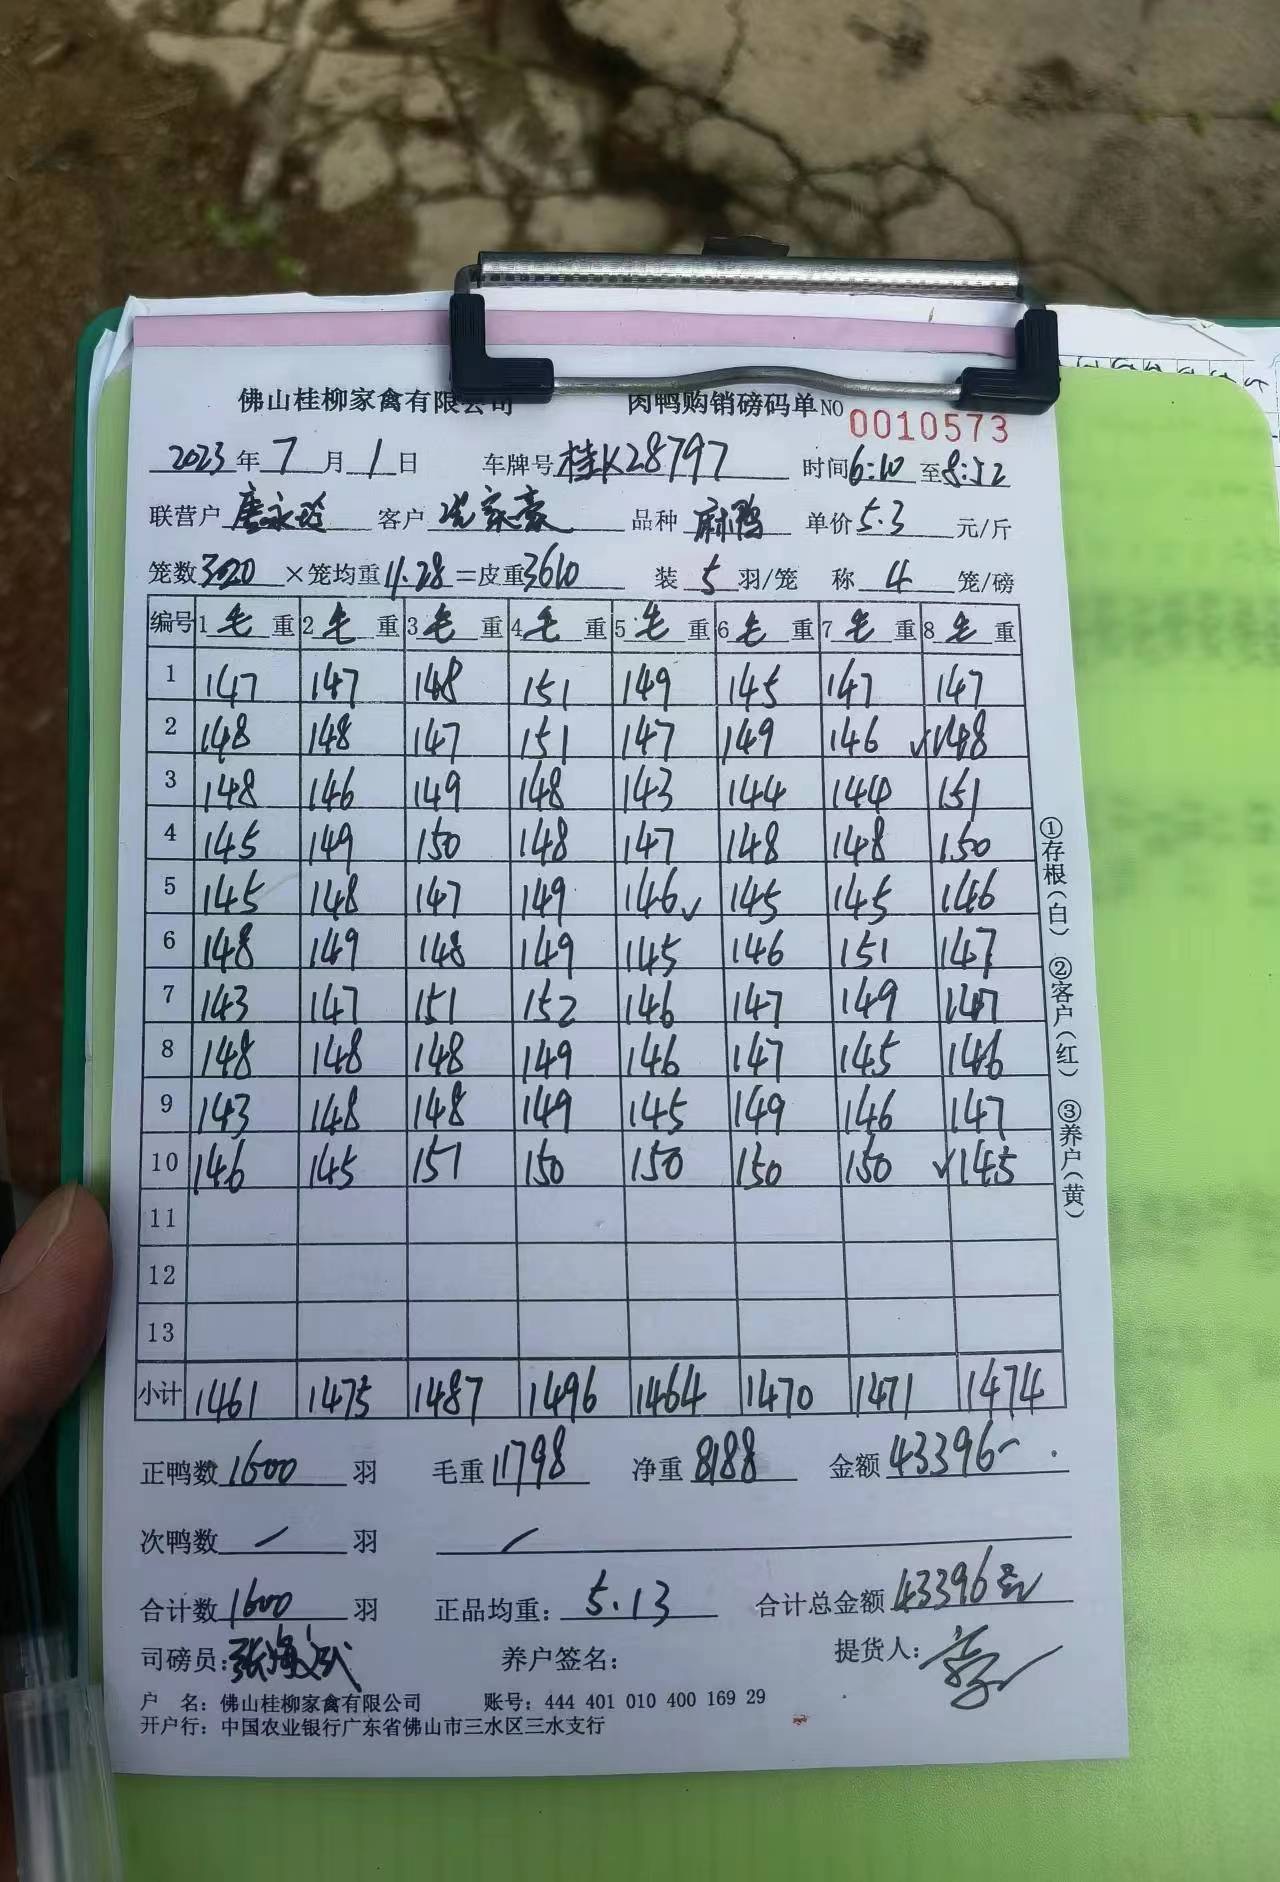 佛山桂柳家禽有限公司 肉鸭购销磅码单NO 0010573
2023年7月1日 车牌号桂K28797 时间6:10至8:52
联营户唐永玲 客户 家豪 品种麻鸭 单价5.3元/斤
笼数320×笼均重11.28=皮重3610 装5羽/笼 称4笼/磅
编号 1毛重 2毛重 3毛重 4毛重 5毛重 6毛重 7毛重 8毛重
1 147 147 148 151 149 145 147 147
2 148 148 147 151 147 149 146 √148
3 148 146 149 148 143 144 144 151
4 145 149 150 148 147 148 148 150
5 145 148 147 149 146√ 145 145 146
6 148 149 148 149 145 146 151 147
7 143 147 151 152 146 147 149 147
8 148 148 148 149 146 147 145 146
9 143 148 148 149 145 149 146 147
10 146 145 151 150 150 150 150 √145
11
12
13
小计 1461 1475 1487 1496 1464 1470 1471 1474
正鸭数1600羽 毛重11798 净重8188 金额43396
次鸭数/羽 /
合计数1600羽 正品均重:5.13 合计总金额43396元
司磅员:张海 养户签名: 提货人:
户 名:佛山桂柳家禽有限公司 账号:444 401 010 400 169 29
开户行:中国农业银行广东省佛山市三水区三水支行
①存根(白) ②客户(红) ③养户(黄)